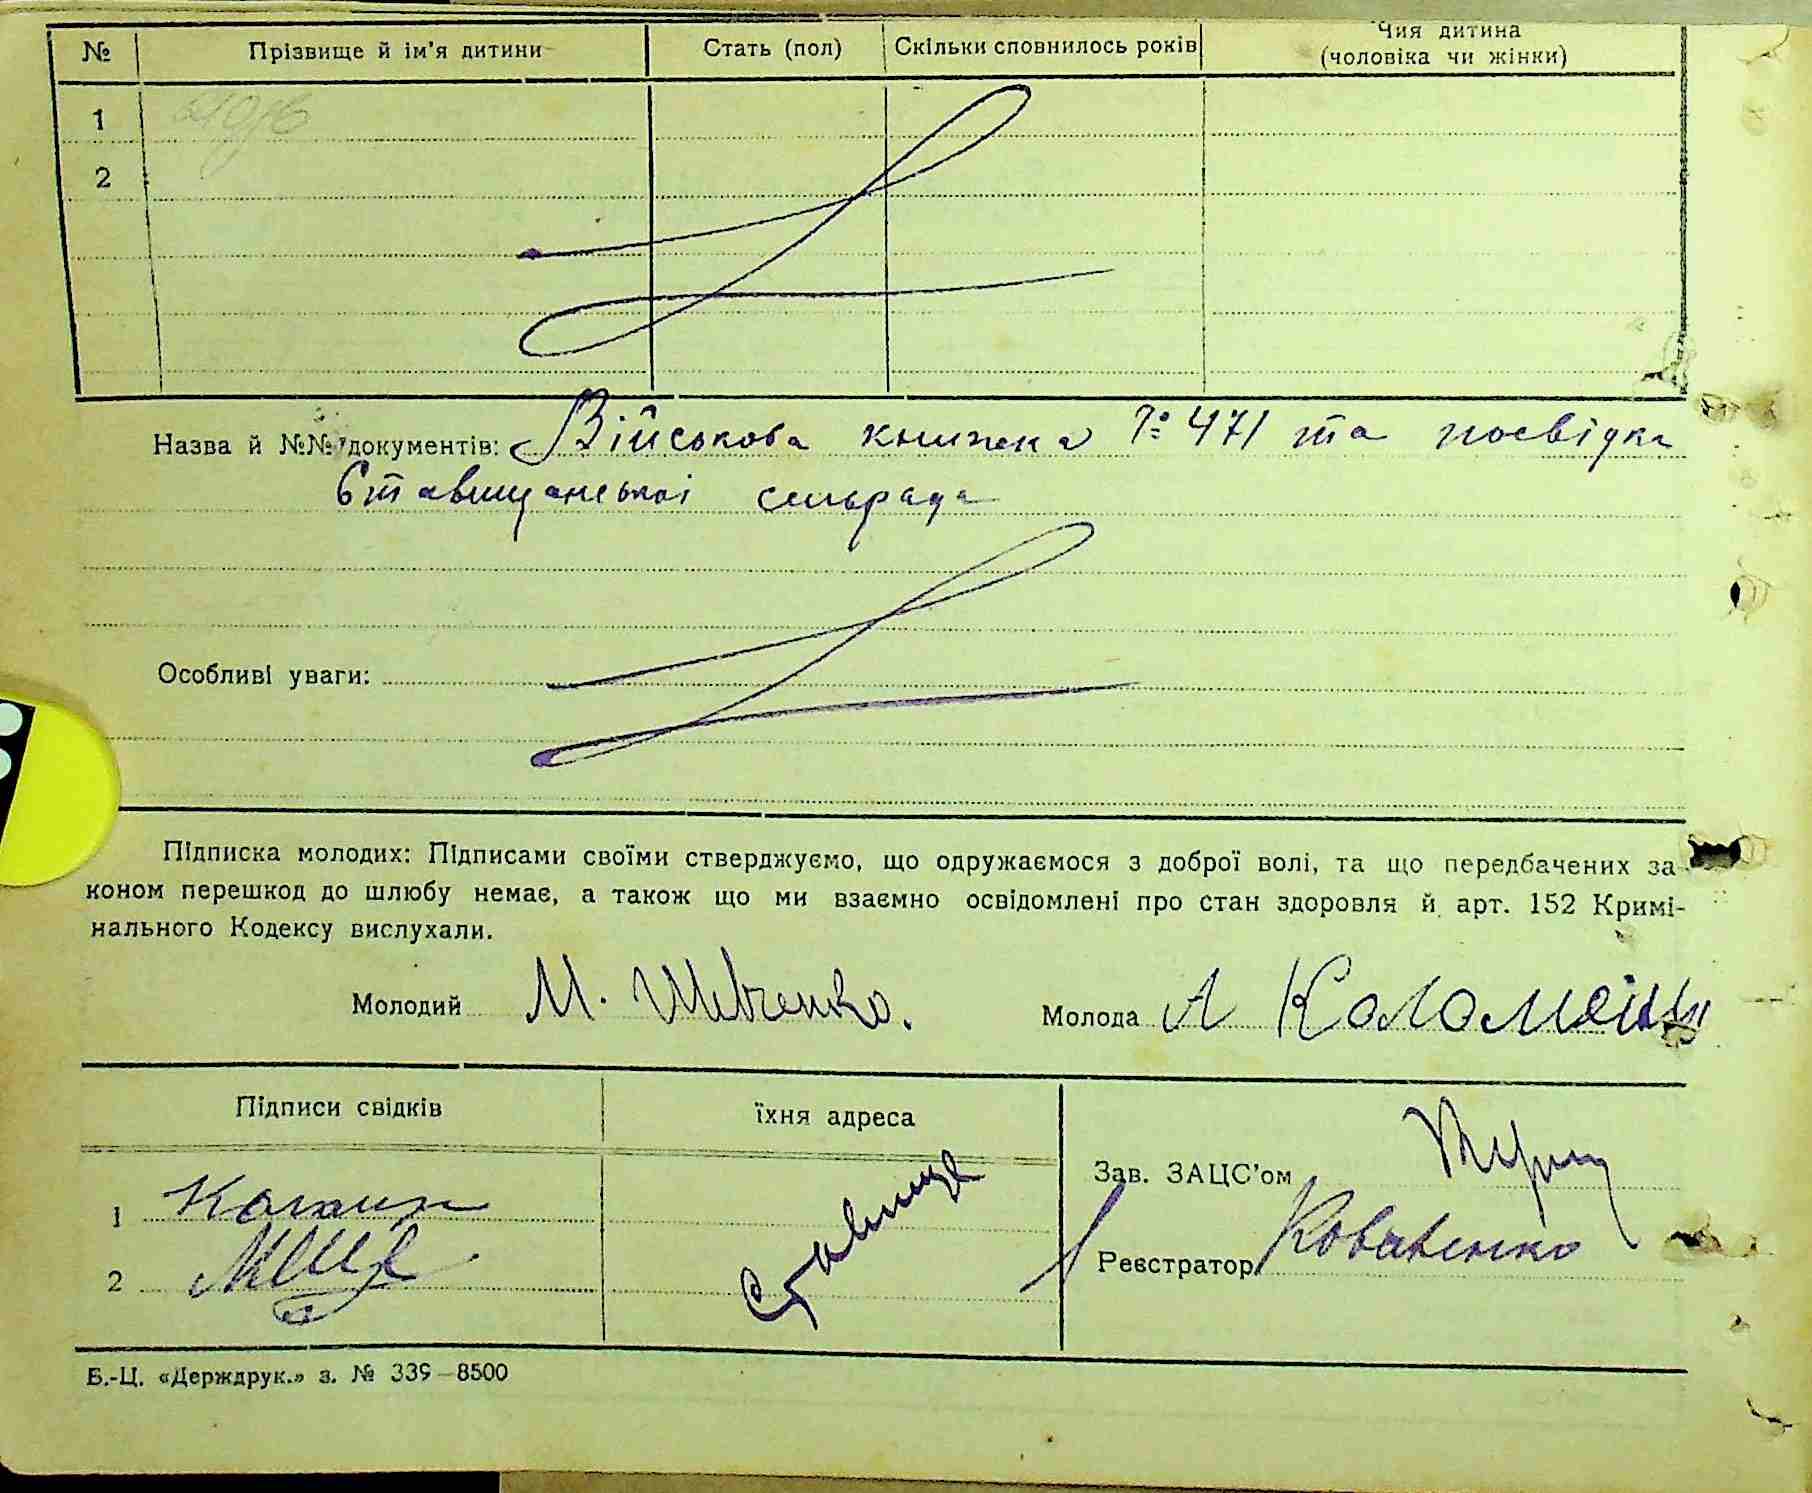 № Прізвище й ім'я дитини Стать (пол) Скільки сповнилось років Чия дитина
(чоловіка чи жінки)
1
2
Назва й №№ документів: Військова книжка № 471 та посвідка
Ставищанської сельрада
Особливі уваги:
Підписка молодих: Підписами своїми стверджуємо, що одружаємося з доброї волі, та що передбачених за
коном перешкод до шлюбу немає, а також що ми взаємно освідомлені про стан здоровля й арт. 152 Кримі-
нального Кодексу вислухали.
Молодий М. Шевченко. Молода А Коломєць
Підписи свідків їхня адреса
Зав. ЗАЦС'ом
1
Ставище
Реєстратор Коваленко
2
Б.-Ц. «Держдрук.» з. № 339—8500